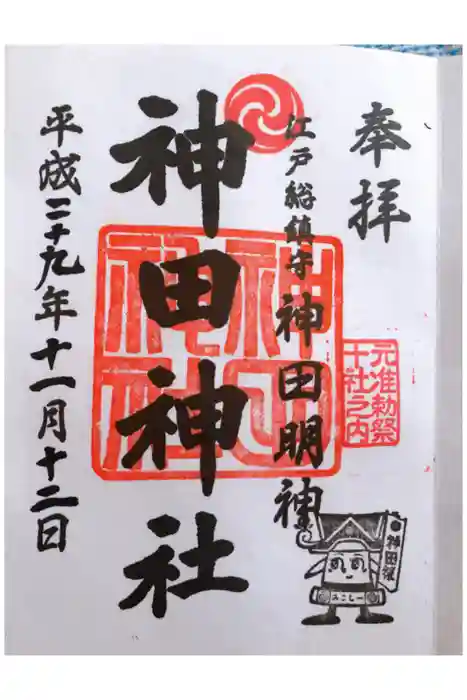 奉拝
江戸総鎮守 神田明神
神田神社
平成二十九年十一月十二日
元准勅祭
十社之内
神田神社
神田祭
みこしー